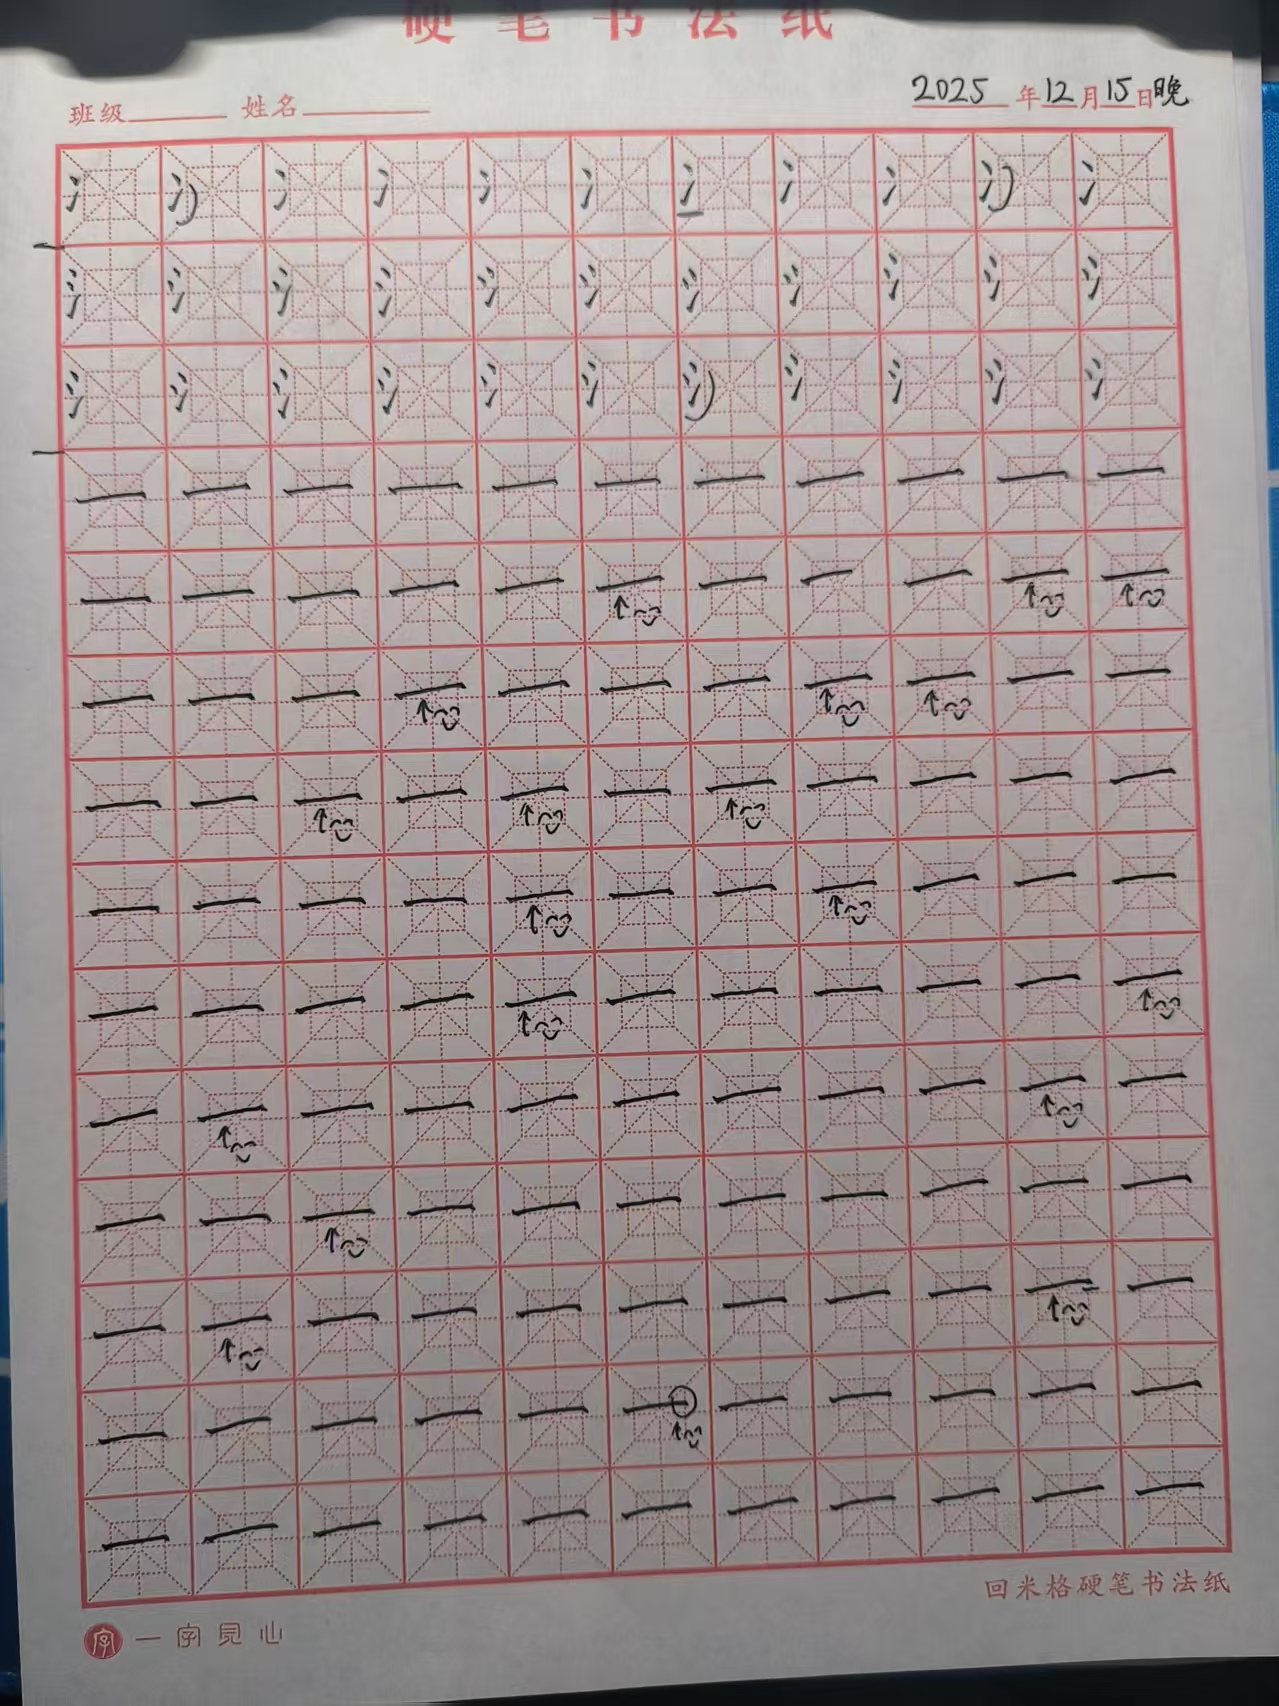 硬笔书法纸
班级 姓名 2025年12月15日晚
氵 氵 氵 氵 氵 氵 氵 氵 氵 氵 氵
氵 氵 氵 氵 氵 氵 氵 氵 氵 氵 氵
氵 氵 氵 氵 氵 氵 氵 氵 氵 氵 氵
一 一 一 一 一 一 一 一 一 一 一
一 一 一 一 一 一 一 一 一 一 一
一 一 一 一 一 一 一 一 一 一 一
一 一 一 一 一 一 一 一 一 一 一
一 一 一 一 一 一 一 一 一 一 一
一 一 一 一 一 一 一 一 一 一 一
一 一 一 一 一 一 一 一 一 一 一
一 一 一 一 一 一 一 一 一 一 一
一 一 一 一 一 一 一 一 一 一 一
一 一 一 一 一 一 一 一 一 一 一
一 一 一 一 一 一 一 一 一 一 一
回米格硬笔书法纸
字 一字見心